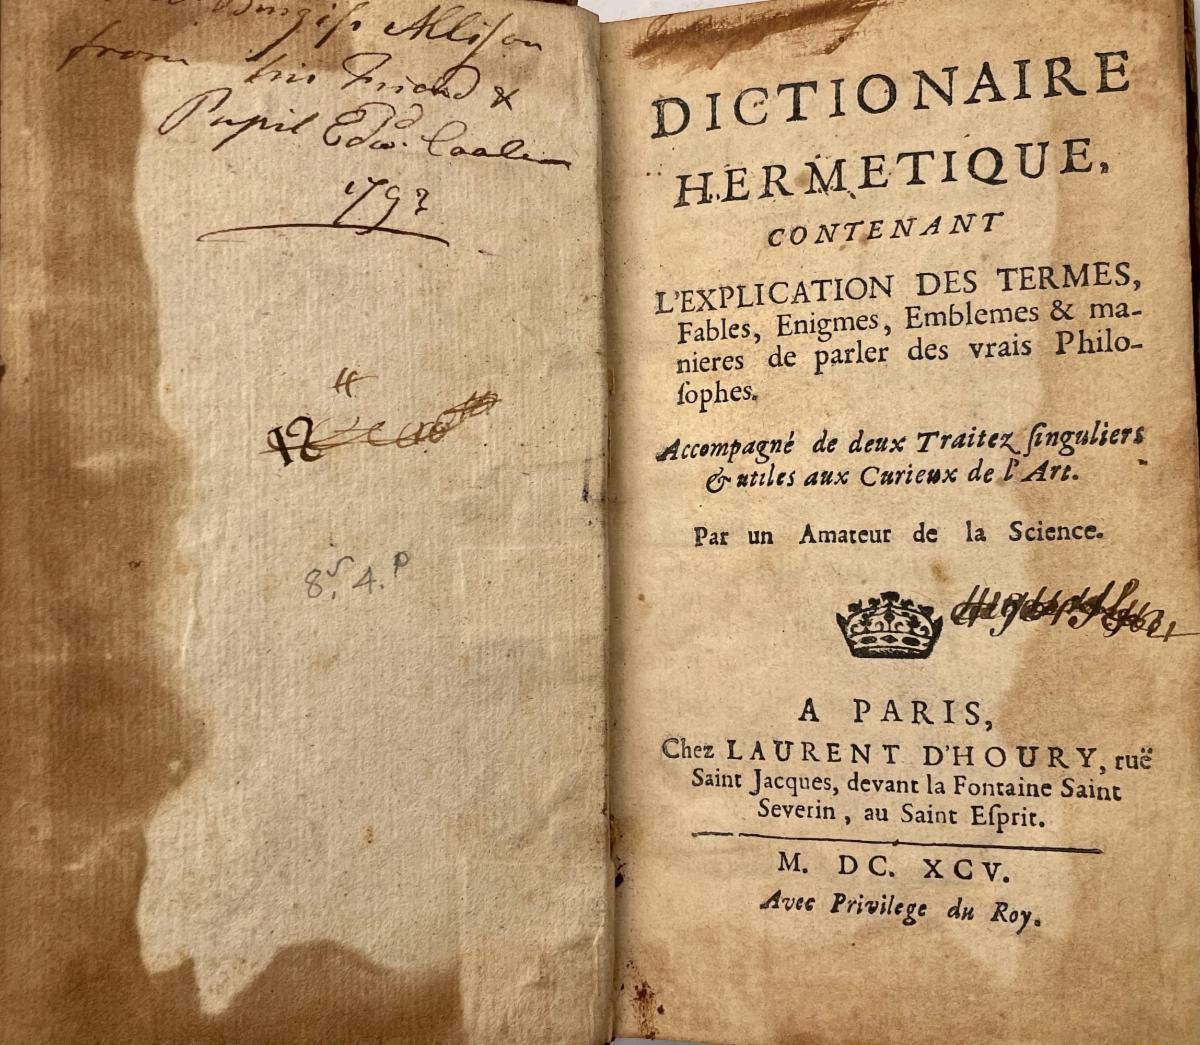 Burgiss Allison
from his Friend &
Pupil Edwd.
179
12
8s. 4.p
DICTIONAIRE
HERMETIQUE,
CONTENANT
L'EXPLICATION DES TERMES,
Fables, Enigmes, Emblemes & ma-
nieres de parler des vrais Philo-
ſophes.
Accompagné de deux Traitez ſinguliers
& utiles aux Curieux de l'Art.
Par un Amateur de la Science.
A PARIS,
Chez LAURENT D'HOURY, ruë
Saint Jacques, devant la Fontaine Saint
Severin, au Saint Eſprit.
M. DC. XCV.
Avec Privilege du Roy.